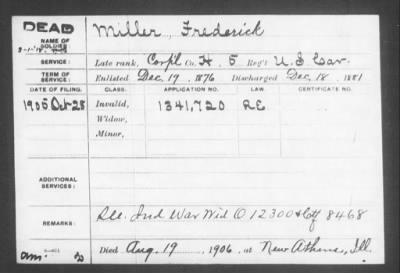 DEAD
Miller, Frederick
NAME OF SOLDIER:
SERVICE: Late rank, Corpl Co. H, 5 Reg't U.S Cav.
TERM OF SERVICE: Enlisted Dec. 19, 1876 Discharged Dec. 18, 1881
DATE OF FILING. CLASS. APPLICATION NO. LAW. CERTIFICATE NO.
1905 Oct-28 Invalid, 1341,720 RE
Widow,
Minor,
ADDITIONAL SERVICES:
REMARKS: See Ind War Wid O 12300 & Ctf 8468
Died Aug. 19, 1906, at New Athens, Ill.